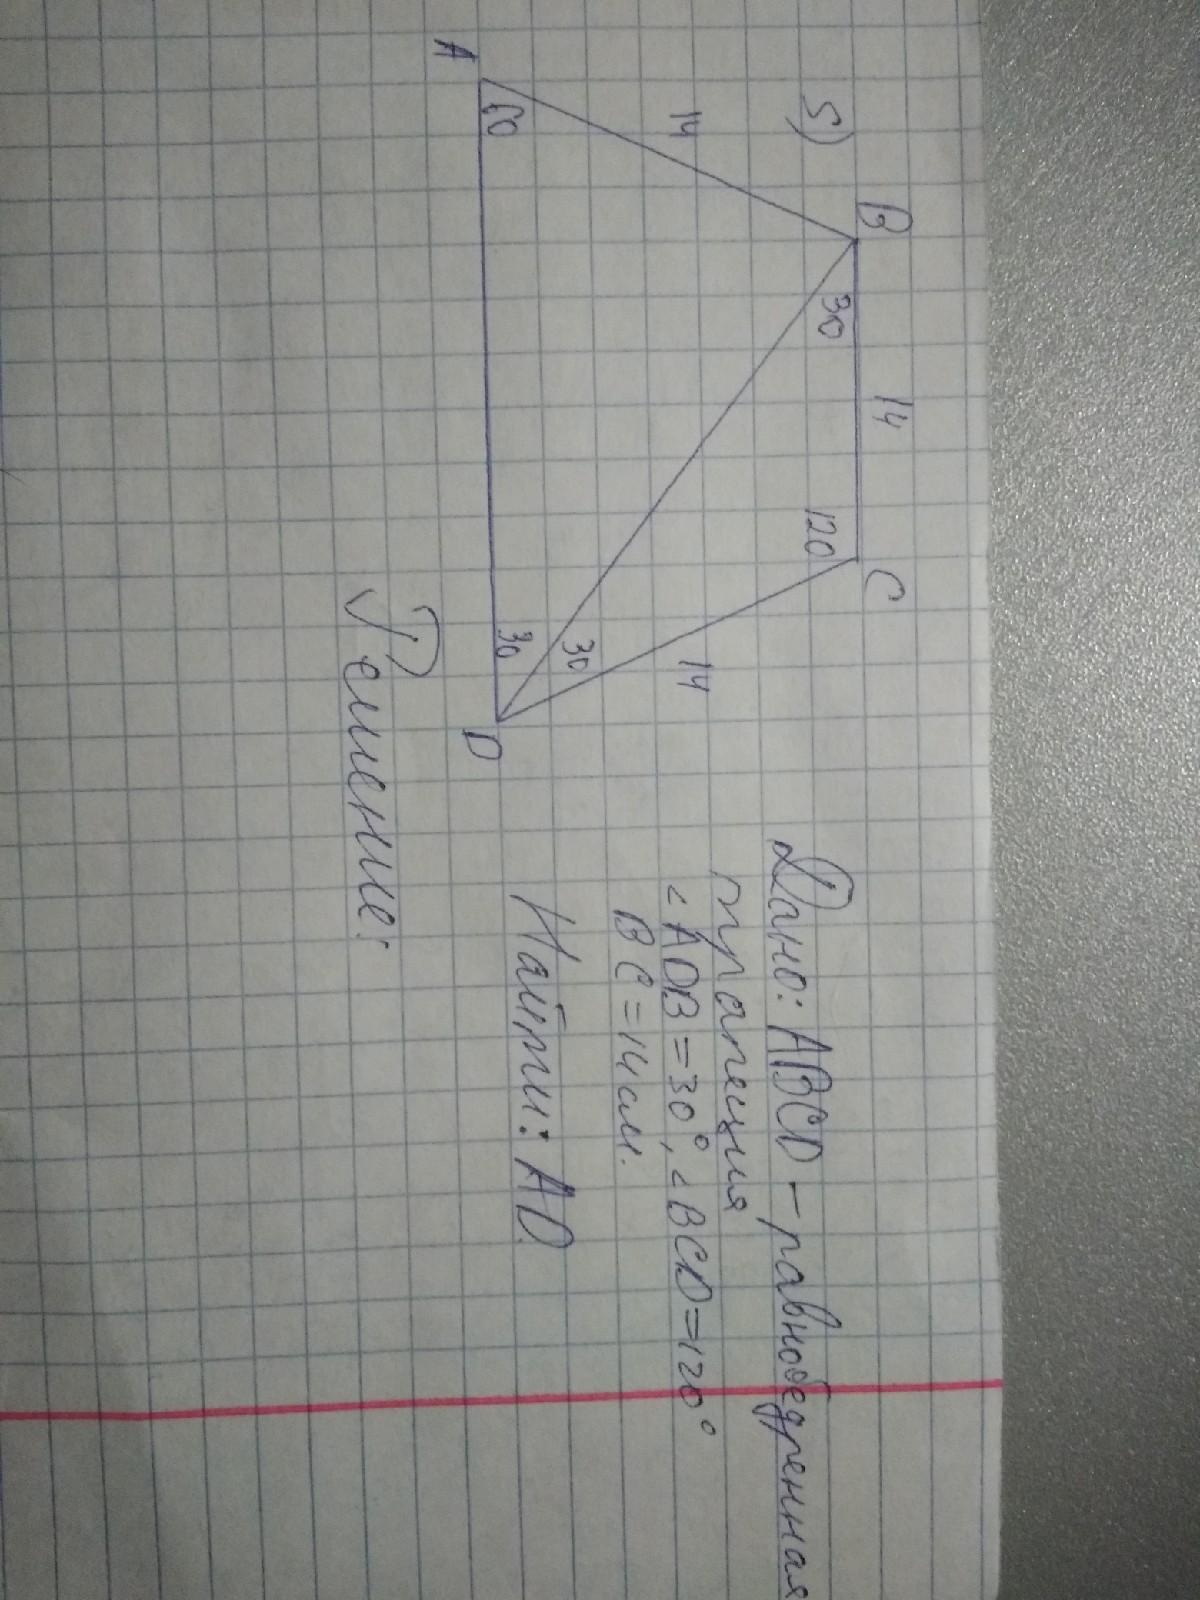 5)
B
14
C
30
120
14
14
30
60
30
A
D
Дано: ABCD – равнобедренная
трапеция
∠ADB=30°, ∠BCD=120°
BC=14см.
Найти: AD.
Решение: